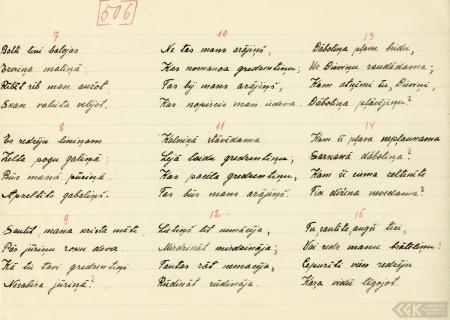 506
7
Balti lini balejas
Ezeriņa maliņā;
Rītāt rīb man aužot,
Skan valstis velejot.
8
Es redzēju liniņam
Zelta pogu galiņā;
Būs manā pūriņā
Apzeltīts gabaliņš.
9
Sauļīt, mana krusta māte,
Pār jūriņu roku deva.
Kā tie tavi gredzentiņi
Nenobira jūriņā?
10
Ne tas mans arājiņš,
Kas nomauca gredzentiņu;
Tas bij mans arājiņš,
Kas nopircis man iedeva.
11
Kalniņā stāvēdama
Lejā laidu gredzentiņu;
Kas pacēla gredzentiņu,
Tas būs mans arājiņš.
12
Lietiņš līt nemācēja,
Miedzināt miedzināja;
Tautas rāt nemācēja,
Rūdināt rūdināja.
13
Dāboliņa pļava brēdu,
Uz Dieviņu raudādama;
Kam atņēmi tu, Dieviņi,
Dāboliņa pļāvējiņu?
14
Kam šī pļava nepļaunama
Sarkanā dāboliņā?
Kam šī ciema zeltenīte
Tik dižena nevedama?
15
Tu, saulīte, augši teci,
Vai redz manu brālēliņu?
Cepurīti vien redzēju
Kara vidū līgojot.